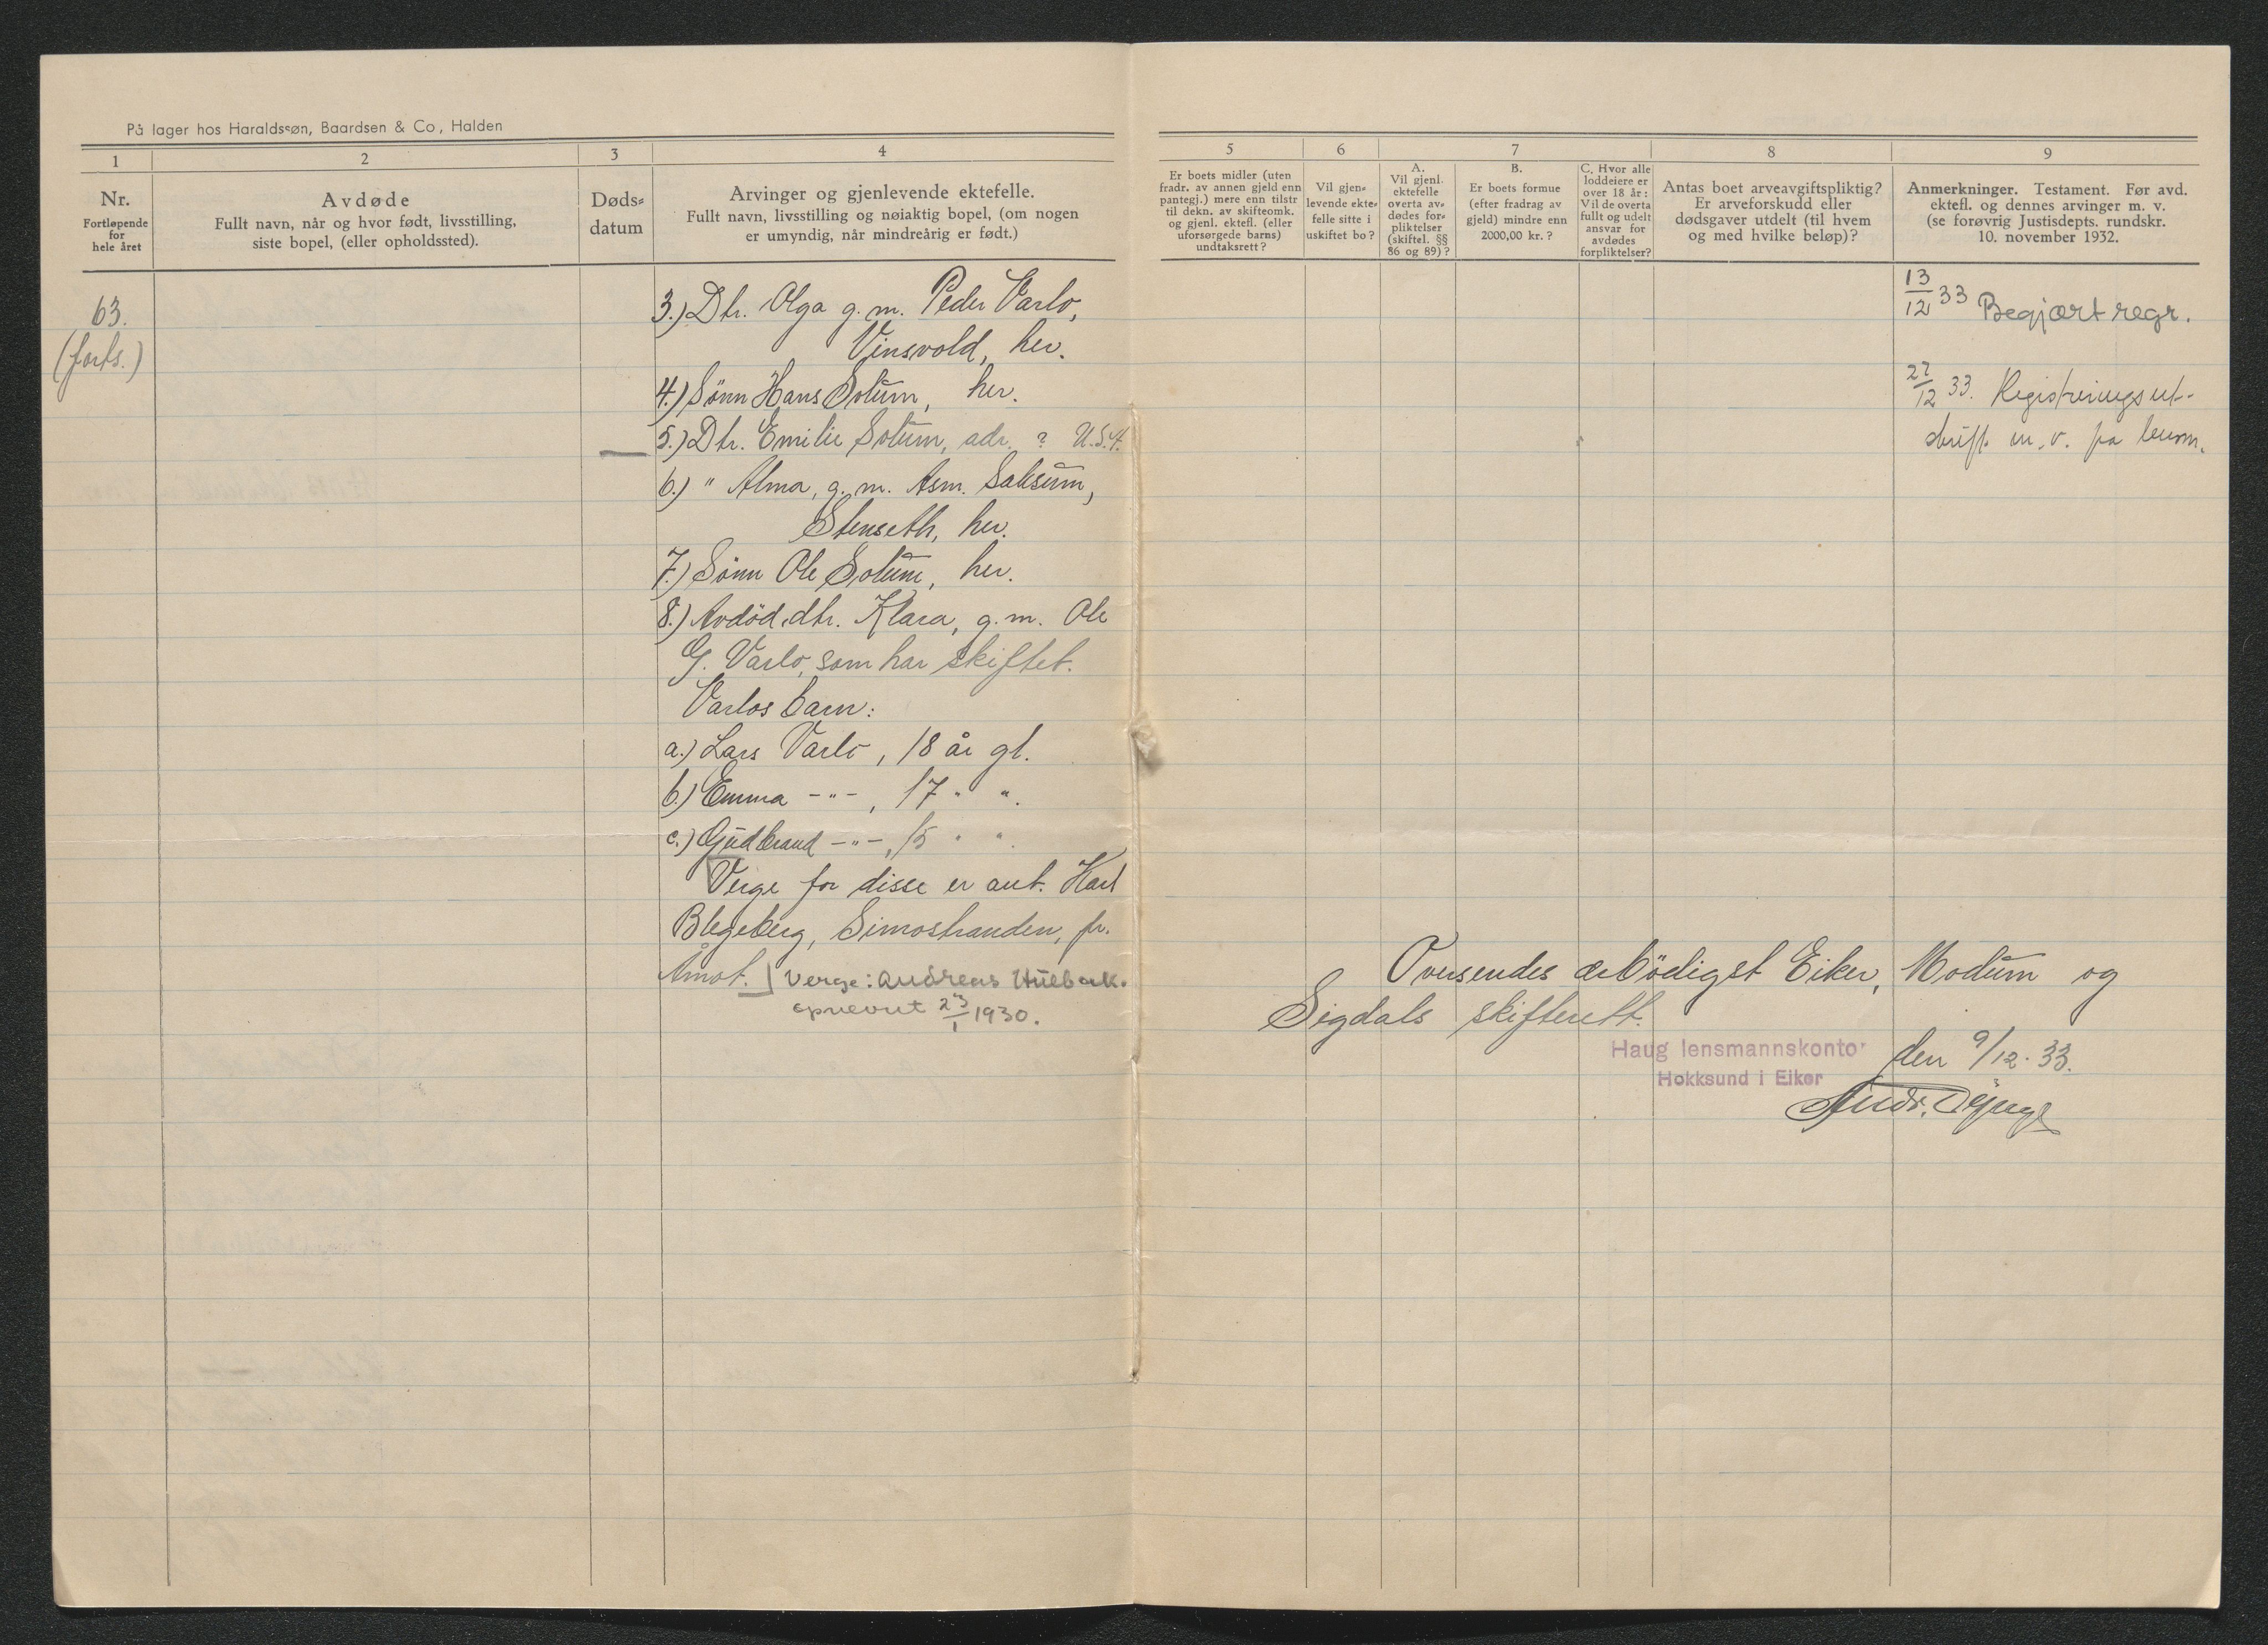 På lager hos Haraldssøn, Baardsen & Co, Halden
1
2
3
4
Nr.
Fortløpende
for
hele året
Avdøde
Fullt navn, når og hvor født, livsstilling,
siste bopel, (eller opholdssted).
Døds-
datum
Arvinger og gjenlevende ektefelle.
Fullt navn, livsstilling og nøiaktig bopel, (om nogen
er umyndig, når mindreårig er født.)
63.
(forts.)
3.) Dtr. Olga g. m. Peder Varlo,
Vinsvold, her.
4.) Sønn Hans Solum, her.
5.) Dtr. Emilie Solum, adr. ? U.S.A.
6.) " Alma, g. m. Asm. Saksum,
Stenseth, her.
7.) Sønn Ole Solum, her.
8.) Avdød dtr. Klara, g. m. Ole
G. Varlo, som har skiftet.
Varlos barn:
a.) Lars Varlo, 18 år gl.
b.) Emma -"-, 17 " ".
c.) Gudbrand -"-, 15 " ".
Verge for disse er ant. Karl
Blegeberg, Simostranden, pr.
Åmot. Verge: Andreas Hulbak.
opnevnt 23/1 1930.
5
6
7
8
9
Er boets midler (uten
fradr. av annen gjeld enn
pantegj.) mere enn tilstr
til dekn. av skifteomk.
og gjenl. ektefl. (eller
uforsørgede barns)
undtaksrett?
Vil gjen-
levende ekte-
felle sitte i
uskiftet bo?
A.
Vil gjenl.
ektefelle
overta av-
dødes for-
pliktelser
(skiftel. §§
86 og 89)?
B.
Er boets formue
(efter fradrag av
gjeld) mindre enn
2000,00 kr.?
C. Hvor alle
loddeiere er
over 18 år:
Vil de overta
fullt og udelt
ansvar for
avdødes
forpliktelser?
Antas boet arveavgiftspliktig?
Er arveforskudd eller
dødsgaver utdelt (til hvem
og med hvilke beløp)?
Anmerkninger. Testament. Før avd.
ektefl. og dennes arvinger m. v.
(se forøvrig Justisdepts. rundskr.
10. november 1932.
13/12 33 Begjært regr.
27/12 33. Registreringsut-
skrift m. v. fra lensm.
Oversendes ærbødigst Eiker, Modum og
Sigdals skifterett.
Haug lensmannskontor
Hokksund i Eiker
den 9/12. 33.
Andr.